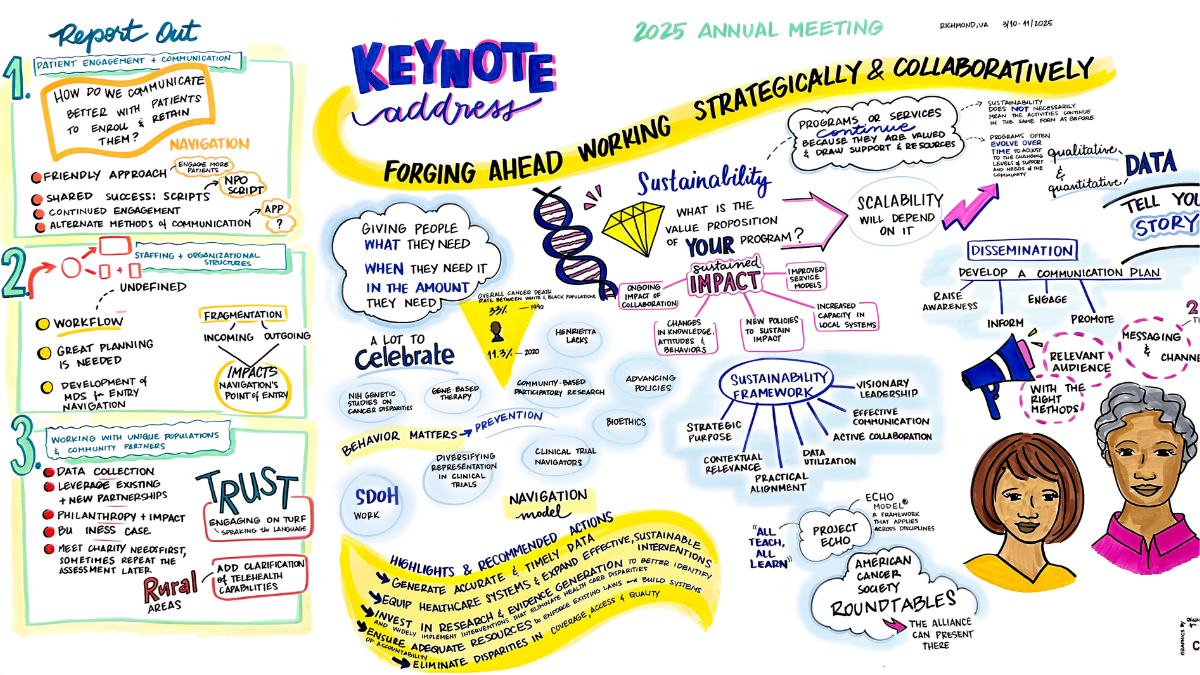 Report Out
1.
PATIENT ENGAGEMENT + COMMUNICATION
HOW DO WE COMMUNICATE
BETTER WITH PATIENTS
TO ENROLL & RETAIN
THEM?
NAVIGATION
FRIENDLY APPROACH
ENGAGE MORE
PATIENTS
SHARED SUCCESS: SCRIPTS
NPO
SCRIPT
CONTINUED ENGAGEMENT
ALTERNATE METHODS of COMMUNICATION
APP
?
2.
STAFFING + ORGANIZATIONAL
STRUCTURES
UNDEFINED
WORKFLOW
GREAT PLANNING
IS NEEDED
DEVELOPMENT of
MDS for ENTRY
NAVIGATION
FRAGMENTATION
INCOMING OUTGOING
IMPACTS
NAVIGATION'S
POINT of ENTRY
3.
WORKING WITH UNIQUE POPULATIONS
& COMMUNITY PARTNERS
DATA COLLECTION
LEVERAGE EXISTING
+ NEW PARTNERSHIPS
PHILANTHROPY + IMPACT
BU INESS CASE
MEET CHARITY NEEDS FIRST,
SOMETIMES REPEAT THE
ASSESSMENT LATER
TRUST
ENGAGING ON TURF
SPEAKING the LANGUAGE
Rural
AREAS
ADD CLARIFICATION
of TELEHEALTH
CAPABILITIES
KEYNOTE
address
2025 ANNUAL MEETING
RICHMOND, VA 3/10-11/2025
FORGING AHEAD WORKING STRATEGICALLY & COLLABORATIVELY
GIVING PEOPLE
WHAT THEY NEED
WHEN THEY NEED IT
IN THE AMOUNT
THEY NEED
OVERALL CANCER DEATH
RATE BETWEEN WHITE & BLACK POPULATIONS
33% — 1990
11.3% — 2020
A LOT TO
Celebrate
HENRIETTA
LACKS
NIH GENETIC
STUDIES ON
CANCER DISPARITIES
GENE-BASED
THERAPY
COMMUNITY-BASED
PARTICIPATORY RESEARCH
ADVANCING
POLICIES
BIOETHICS
BEHAVIOR MATTERS → PREVENTION
SDOH
WORK
DIVERSIFYING
REPRESENTATION
IN CLINICAL
TRIALS
CLINICAL TRIAL
NAVIGATORS
NAVIGATION
model
HIGHLIGHTS & RECOMMENDED ACTIONS
GENERATE ACCURATE & TIMELY DATA
EQUIP HEALTHCARE SYSTEMS & EXPAND EFFECTIVE, SUSTAINABLE
INTERVENTIONS
INVEST IN RESEARCH & EVIDENCE GENERATION TO BETTER IDENTIFY
AND WIDELY IMPLEMENT INTERVENTIONS THAT ELIMINATE HEALTH CARE DISPARITIES
ENSURE ADEQUATE RESOURCES to ENFORCE EXISTING LAWS and BUILD SYSTEMS
OF ACCOUNTABILITY
ELIMINATE DISPARITIES IN COVERAGE, ACCESS & QUALITY
Sustainability
WHAT IS THE
VALUE PROPOSITION
OF YOUR PROGRAM?
PROGRAMS OR SERVICES
continue
BECAUSE THEY ARE VALUED
& DRAW SUPPORT & RESOURCES
SUSTAINABILITY
DOES NOT NECESSARILY
MEAN THE ACTIVITIES CONTINUE
IN THE SAME FORM AS BEFORE
PROGRAMS OFTEN
EVOLVE OVER
TIME TO ADJUST
TO THE CHANGING
LEVELS of SUPPORT
AND NEEDS OF THE
COMMUNITY
SCALABILITY
WILL DEPEND
ON IT
sustained
IMPACT
ONGOING
IMPACT OF
COLLABORATION
CHANGES
IN KNOWLEDGE,
ATTITUDES &
BEHAVIORS
NEW POLICIES
TO SUSTAIN
IMPACT
IMPROVED
SERVICE
MODELS
INCREASED
CAPACITY IN
LOCAL SYSTEMS
SUSTAINABILITY
FRAMEWORK
STRATEGIC
PURPOSE
CONTEXTUAL
RELEVANCE
PRACTICAL
ALIGNMENT
DATA
UTILIZATION
ACTIVE COLLABORATION
EFFECTIVE
COMMUNICATION
VISIONARY
LEADERSHIP
qualitative
&
quantitative
DATA
TELL YOU
STORY
DISSEMINATION
DEVELOP A COMMUNICATION PLAN
RAISE
AWARENESS
INFORM
ENGAGE
PROMOTE
RELEVANT
AUDIENCE
WITH THE
RIGHT
METHODS
MESSAGING
&
CHANNE
2
"ALL
TEACH,
ALL
LEARN"
PROJECT
ECHO
ECHO
MODEL®
A FRAMEWORK
THAT APPLIES
ACROSS DISCIPLINES
AMERICAN
CANCER
SOCIETY
ROUNDTABLES
THE ALLIANCE
CAN PRESENT
THERE
GRAPHICS BY
C